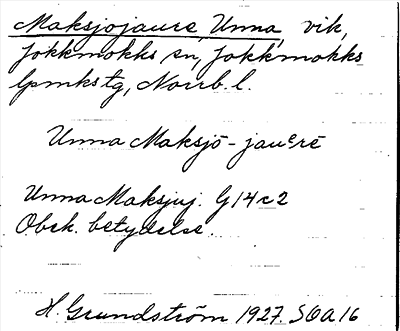 Maksjojaure, Unna, vik,
Jokkmokks sn, Jokkmokks
lpmkstg, Norrb. l.
Unna Maksjō-jauᵉrē
Unna Maksjuj. G14c2
Obek. betydelse.
H. Grundström 1927. SOA 16